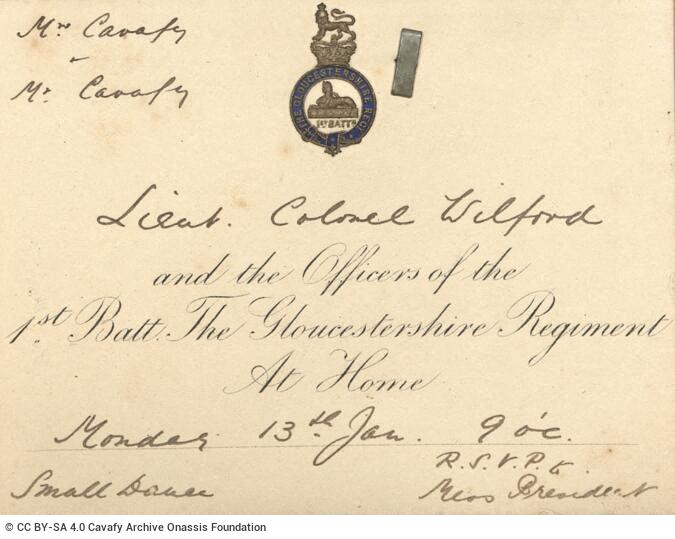 Mrs Cavafy
Mr Cavafy
THE GLOUCESTERSHIRE REGT
1ST BATTN
Lieut. Colonel Wilford
and the Officers of the
1st Batt. The Gloucestershire Regiment
At Home
Monday 13th Jan. 9 o'c.
R.S.V.P. to
Mess President
Small Dance
© CC BY-SA 4.0 Cavafy Archive Onassis Foundation